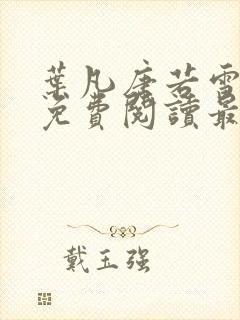 葉凡唐若雪
免費閱讀最
戴玉强